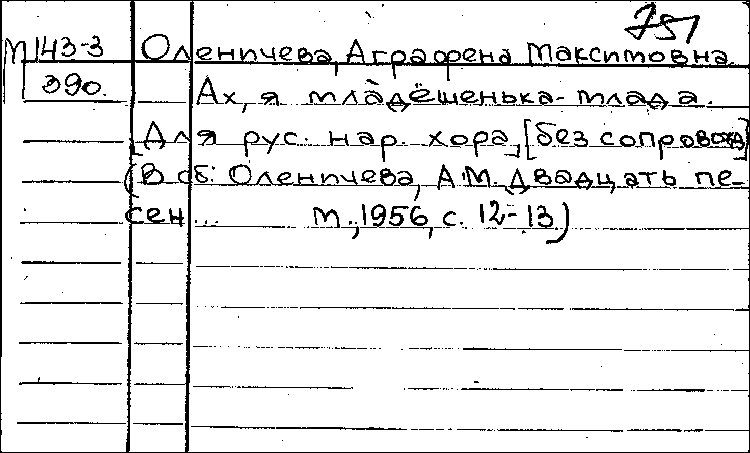 751
М 143-3 Оленичева, Аграфена Максимовна.
390. Ах, я младёшенька-млада.
Для рус. нар. хора, [без сопровожд]
(В сб: Оленичева, А.М. Двадцать пе-
сен... М., 1956, с. 12-13)